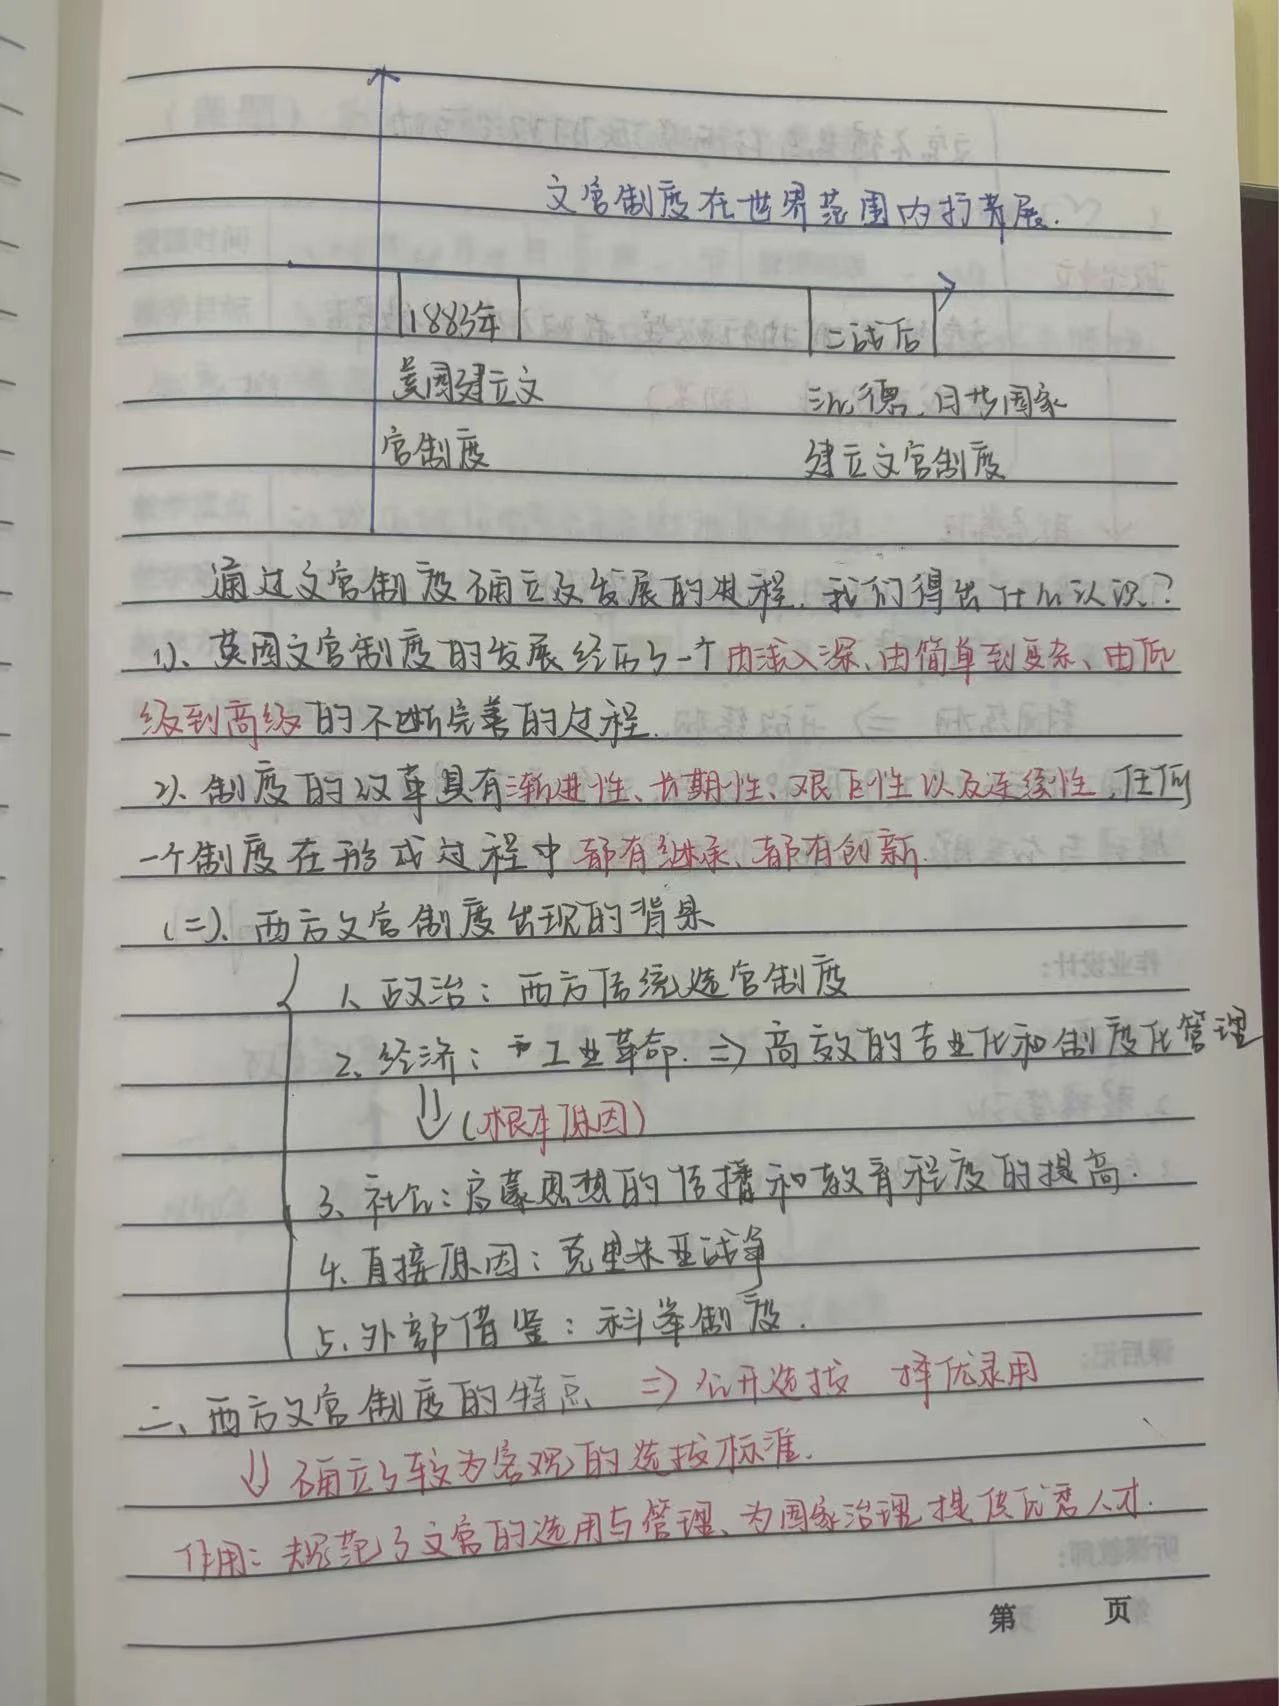 文官制度在世界范围内扩展.
1883年
二战后
美国建立文
官制度
法、德、日等国家
建立文官制度
通过文官制度确立及发展的过程,我们得出什么认识?
1)、英国文官制度的发展经历了一个由浅入深、由简单到复杂、由低
级到高级的不断完善的过程.
2)、制度的改革具有渐进性、长期性、艰巨性以及连续性,任何
一个制度在形成过程中都有继承、都有创新.
(二)、西方文官制度出现的背景
1、政治:西方传统选官制度
2、经济:工业革命.⇒高效的专业化和制度化管理
⇓(根本原因)
3、社会:启蒙思想的传播和教育程度的提高.
4、直接原因:克里米亚战争
5、外部借鉴:科举制度.
二、西方文官制度的特点 ⇒公开选拔 择优录用
⇓确立了较为客观的选拔标准.
作用:规范了文官的选用与管理、为国家治理提供优秀人才.
第 页